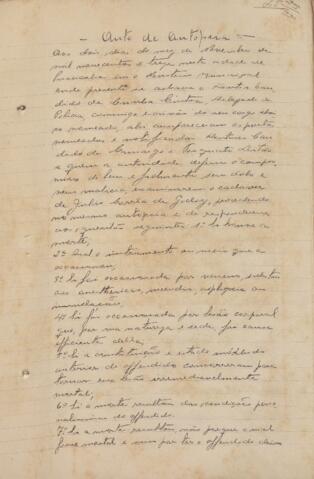 Auto de Autopsia
Aos dois dias do mez de Novembro de
mil novecentos e treze nesta cidade de
Piracicaba em o Necroterio Municipal
onde presente se achava o Doutor Can
dido da Cunha Cintra, Delegado de
Policia, commigo escrivão do seu cargo abai
xo nomeado, ahi compareceram os peritos
nomeados e notificados Doutores
de Camargo e Torquato
a quem a autoridade deferiu o compro
misso de bem e fielmente sem dolo e
sem malicia, examinarem o cadaver
de Julio Corrêa de Godoy, procedendo
no mesmo autopsia e de responderem
aos quesitos seguintes: 1º Se houve a
morte;
2º Qual o instrumento ou meio que a
occasionou;
3º Se foi occasionada por veneno, substan
cias anesthesicas, incendio, asphyxia ou
innundação;
4º Se foi occasionada por lesão corporal
que, por sua natureza e séde, foi causa
efficiente della;
5º Se a constituição e estado morbido
anterior do offendido concorreram para
tornar essa lesão irremediavelmente
mortal;
6º Se a morte resultou das condições perso
nalissimas do offendido;
7º Se a morte resultou, não porque o mal
fosse mortal e sim por ter o offendido deixa